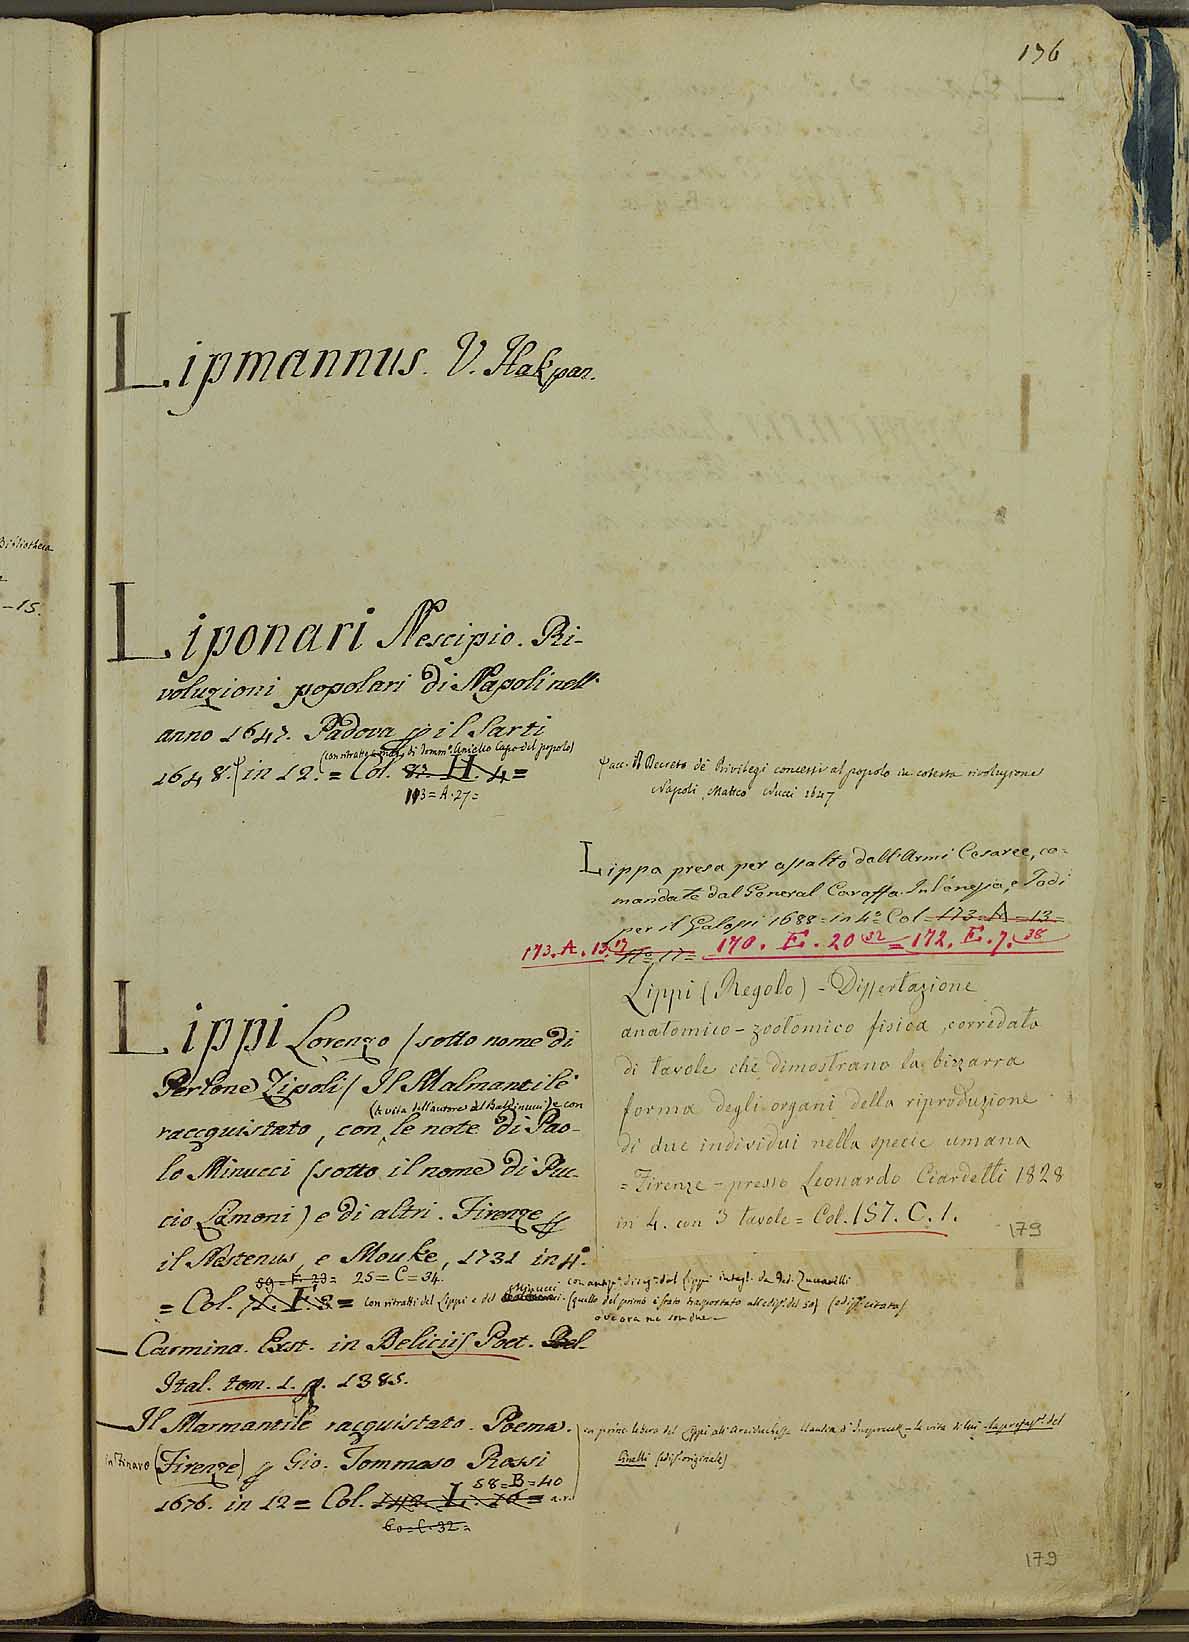 176
Bibliotheca
-15.
Lipmannus. V. Hakspan.
Liponari Nescipio. Ri-
voluzioni popolari di Napoli nell'
anno 1647. Padova p il Sarti
(con ritratto di Tomm.º Aniello Capo del popolo)
1648. in 12. = Col. 87. H. 4 =
113 = A. 27 =
acc. Il Decreto de' Privilegi concessi al popolo in cotesta rivoluzione
Napoli, Matteo Nucci 1647
Lippa presa per assalto dall'Armi Cesaree, co-
mandate dal General Caraffa. In Venezia, e Todi
per il Galassi 1688 = in 4º Col = 173 = A = 13 =
Nº 17 =
173. A. 13. 17 170. E. 20 32 = 172. E. 7. 38
Lippi (Regolo) - Dissertazione
anatomico - zootomico fisica, corredata
di tavole che dimostrano la bizzarra
forma degli organi della riproduzione
di due individui nella specie umana
= Firenze - presso Leonardo Ciardetti 1828
in 4. con 3 tavole = Col. 157. C. 1.
179
Lippi Lorenzo / sotto nome di
Perlone Zipoli / Il Malmantile
(la vita dell'autore del Baldinucci) e con
raccquistato, con le note di Pao-
lo Minucci (sotto il nome di Puc-
cio Lamoni) e di altri. Firenze p
il Nestenus, e Mouke, 1731 in 4º
59 = F. 23 = 25 = C = 34.
= Col. F. 8 = con ritratti del Lippi e del Minucci
con antip. diseg. dal Lippi intagl. da Fed. Zuccarelli
(quello del primo è stato trasportato all'ediz. del 50) (ediz. citata)
ove ora ne son due -
Carmina. Exst. in Deliciis Poet. Bel-
Ital. tom. 1. p. 1385.
Il Marmantile racquistato. Poema.
in Finaro (Firenze) p Gio. Tommaso Rossi
58 = B = 40
1676. in 12 = Col. 142. L. 16 = a.r.
60 = C. 32 =
la vita di lui - la prefaz. del
Cinelli (ediz. originale)
179